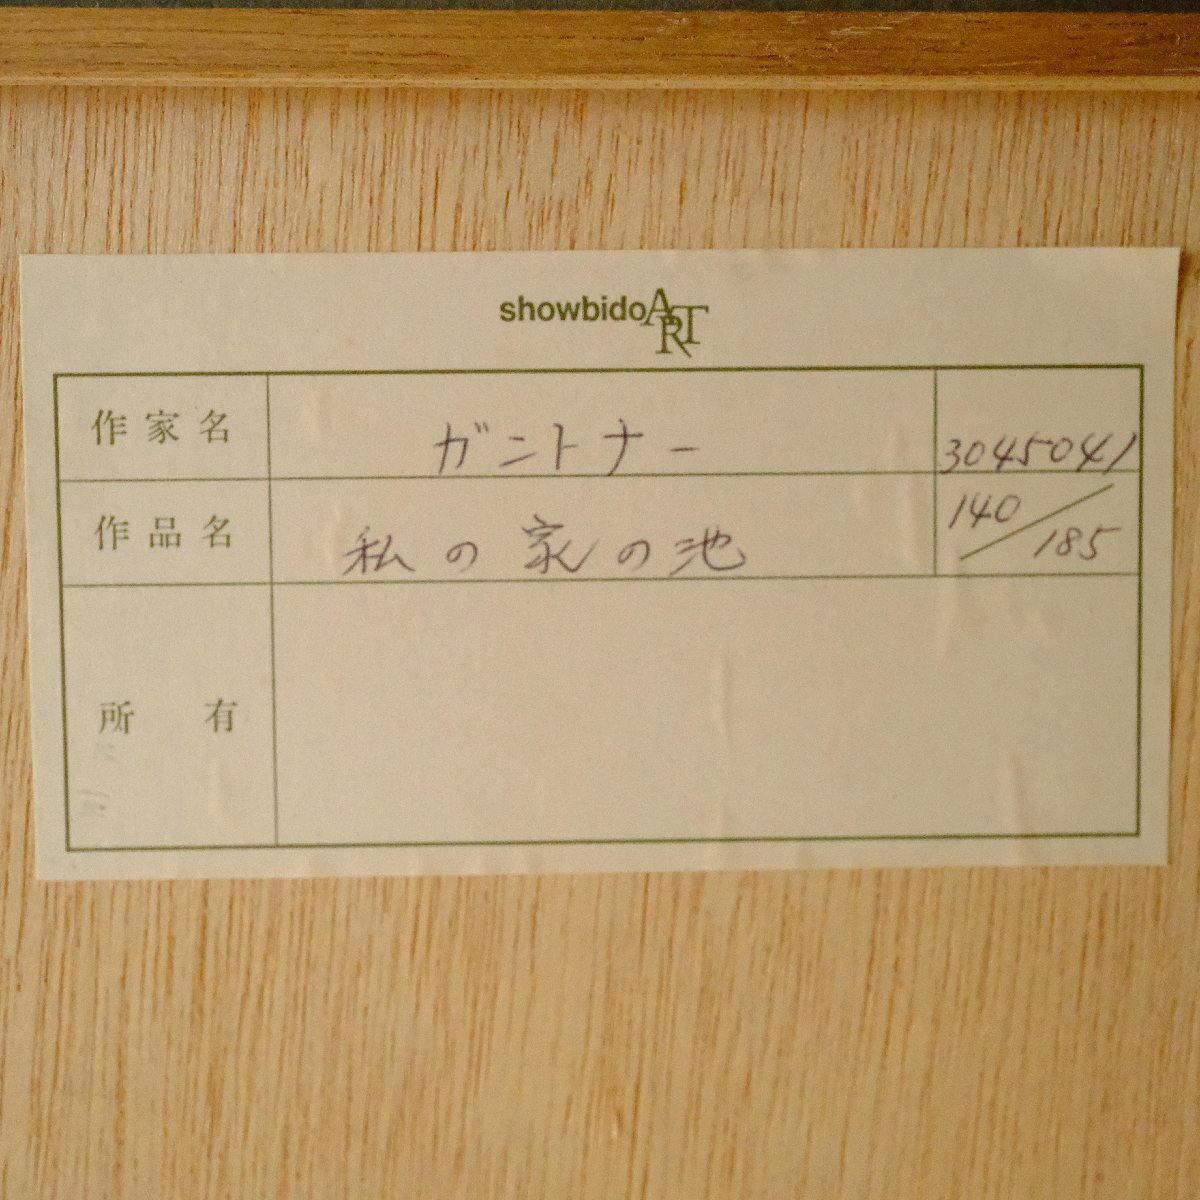 showbido ART
作家名 ガントナー 3045041
作品名 私の家の池 140/185
所有